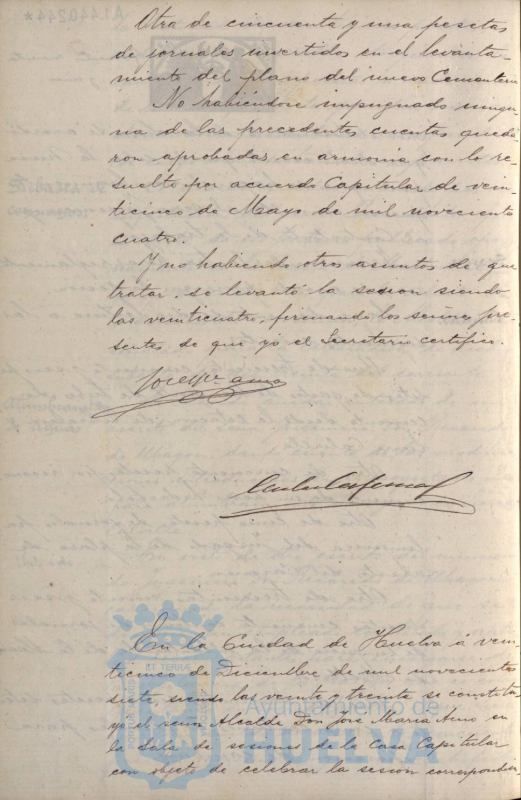 A1440244*
Otra de cincuenta y una pesetas
de jornales invertidos en el levanta-
miento del plano del nuevo Cementerio
No habiéndose impugnado ningu-
na de las precedentes cuentas queda-
ron aprobadas en armonia con lo re-
suelto por acuerdo Capitular de vein-
ticinco de Mayo de mil novecientos
cuatro.
Y no habiendo otros asuntos de que
tratar, se levantó la sesion siendo
las veinticuatro, firmando los señores pre-
sentes de que yo el Secretario certifico.
En la Ciudad de Huelva á vein-
ticinco de Diciembre de mil novecientos
siete, siendo las veinte y treinta se constitu-
yó el señor Alcalde Don José Maria Amo en
la Sala de sesiones de la Casa Capitular
con objeto de celebrar la sesion correspondien-
Ayuntamiento de
HUELVA